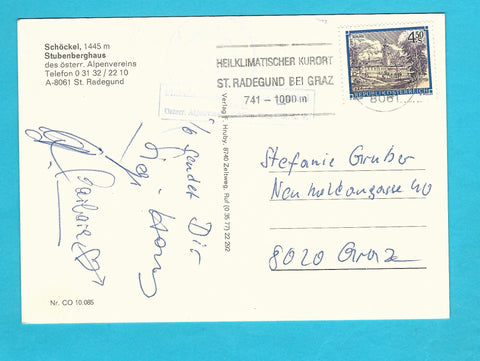 Schöckel, 1445 m
Stubenberghaus
des österr. Alpenvereins
Telefon 0 31 32 / 22 10
A-8061 St. Radegund
HEILKLIMATISCHER KURORT
ST. RADEGUND BEI GRAZ
741 – 1000 m
4.50
REPUBLIK ÖSTERREICH
8061
Österr. Alpen
Verlag Huby, 8740 Zeltweg, Ruf (0 35 77) 22 202
sendet Dir
Barbara
Stefanie Gruber
Neuholdaugasse 40
8020 Graz
Nr. CO 10.085